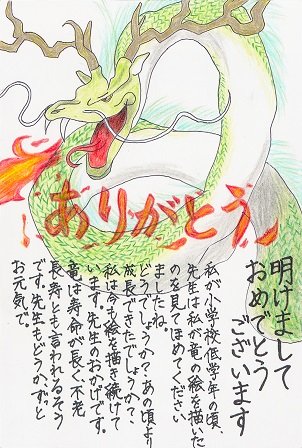 ありがとう
明けまして
おめでとう
ございます
私が小学校低学年の頃
先生は私が竜の絵を描いた
のを見てほめてください
ましたね。
どうでしょうか？あの頃より
成長できたでしょうか？
私は今も絵を描き続けて
います。先生のおかげです。
竜は寿命が長く不老
長寿とも言われるそう
です。先生もどうかずっと
お元気で。